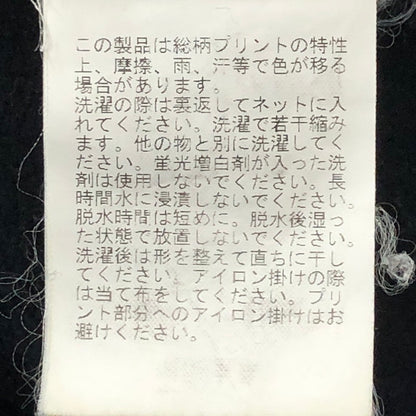 この製品は総柄プリントの特性
上、摩擦、雨、汗等で色が移る
場合があります。
洗濯の際は裏返してネットに入
れてください。洗濯で若干縮み
ます。他の物と別に洗濯してく
ださい。蛍光増白剤が入った洗
剤は使用しないでください。長
時間水に浸漬しないでください。
脱水時間は短めに。脱水後湿っ
た状態で放置しないでください。
洗濯後は形を整えて直ちに干し
てください。アイロン掛けの際
は当て布をしてください。プリ
ント部分へのアイロン掛けはお
避けください。